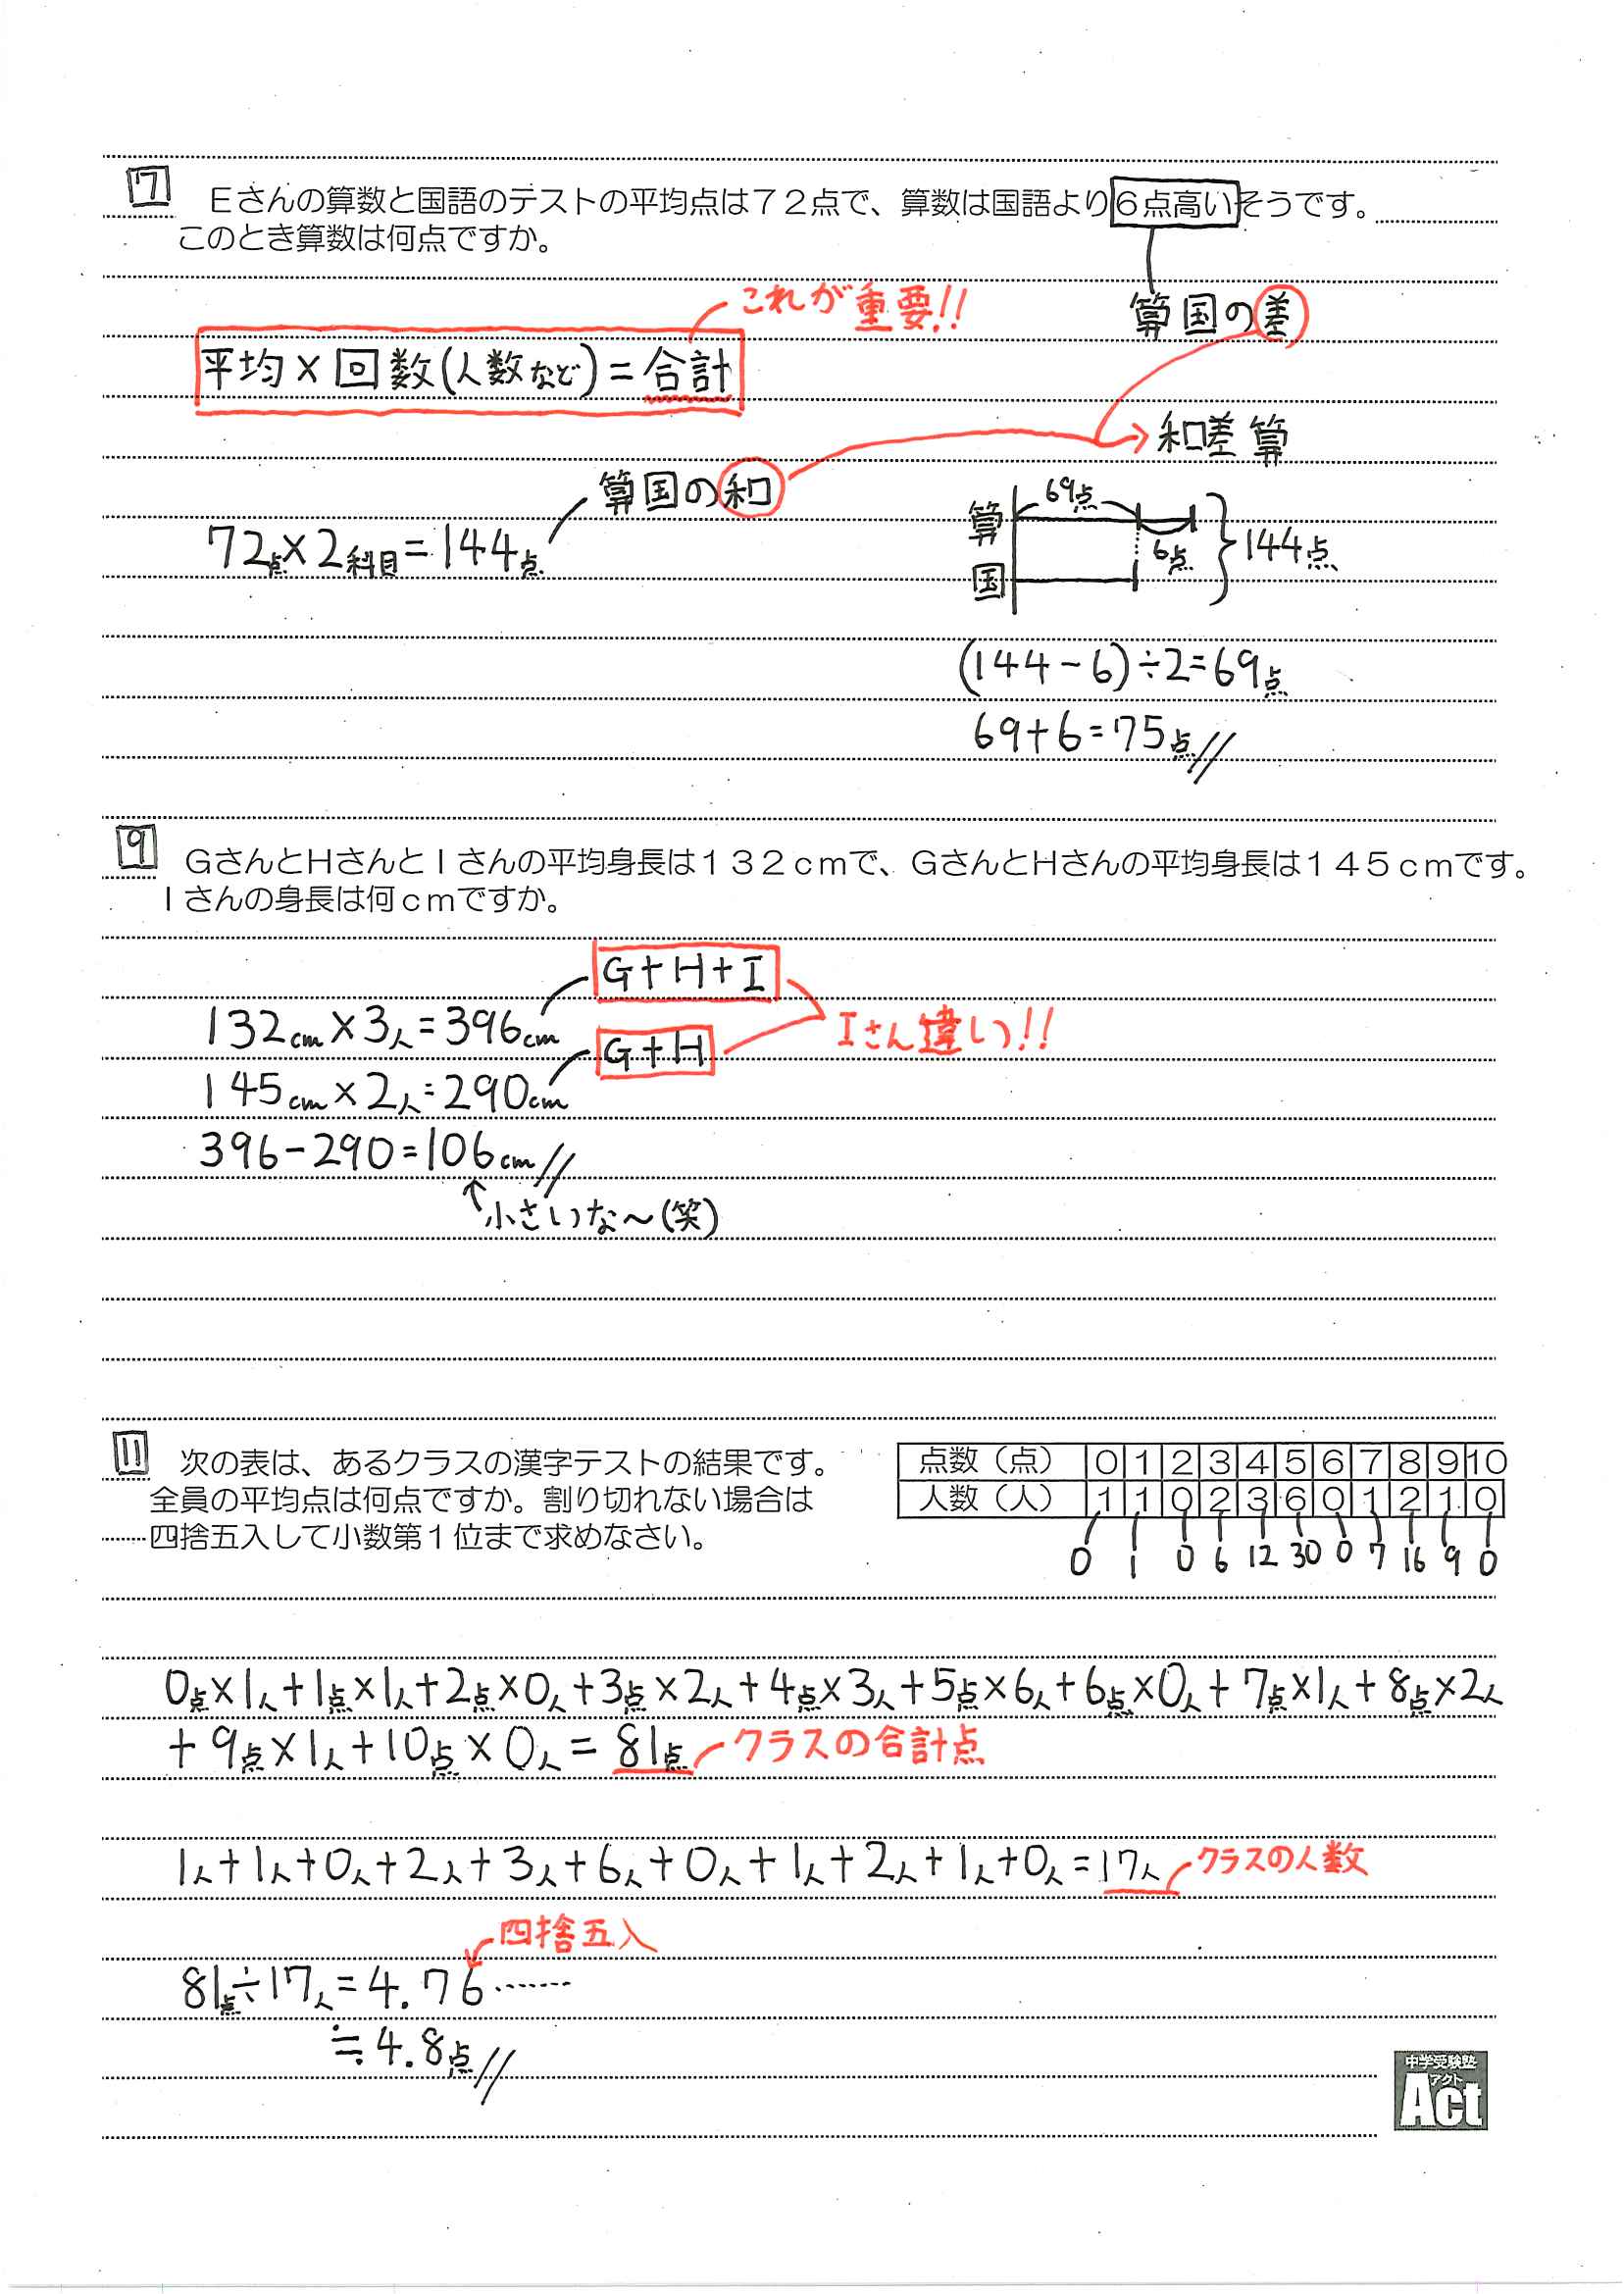 7 Eさんの算数と国語のテストの平均点は72点で、算数は国語より6点高いそうです。
このとき算数は何点ですか。
これが重要!!
算国の差
平均×回数(人数など)=合計
和差算
算国の和
72点×2科目=144点
算 69点
6点 144点
国
(144-6)÷2=69点
69+6=75点
9 GさんとHさんとIさんの平均身長は132cmで、GさんとHさんの平均身長は145cmです。
Iさんの身長は何cmですか。
G+H+I
132cm×3人=396cm
Iさん違い!!
G+H
145cm×2人=290cm
396-290=106cm
↑小さいな〜(笑)
11 次の表は、あるクラスの漢字テストの結果です。
全員の平均点は何点ですか。割り切れない場合は
四捨五入して小数第1位まで求めなさい。
点数(点) 0 1 2 3 4 5 6 7 8 9 10
人数(人) 1 1 0 2 3 6 0 1 2 1 0
0 1 0 6 12 30 0 7 16 9 0
0点×1人+1点×1人+2点×0人+3点×2人+4点×3人+5点×6人+6点×0人+7点×1人+8点×2人
+9点×1人+10点×0人=81点 クラスの合計点
1人+1人+0人+2人+3人+6人+0人+1人+2人+1人+0人=17人 クラスの人数
四捨五入
81点÷17人=4.76……
≒4.8点
中学受験塾
アクト
Act